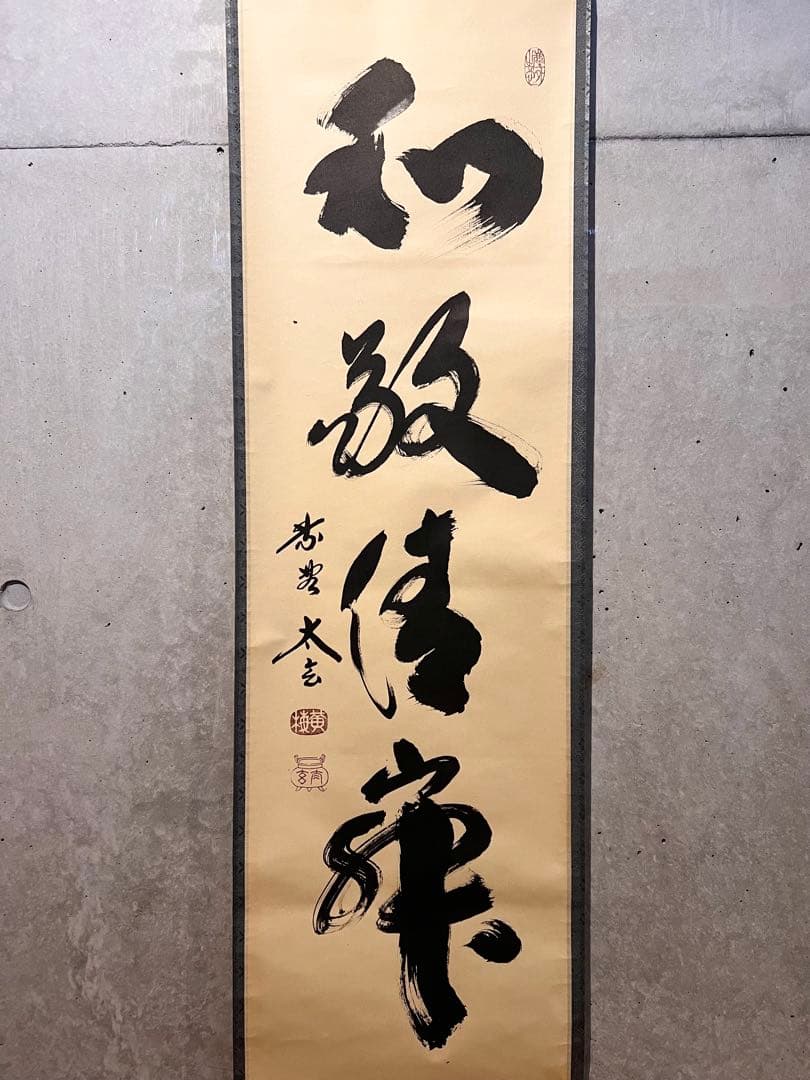 和敬清寂
紫野 太玄
黄梅